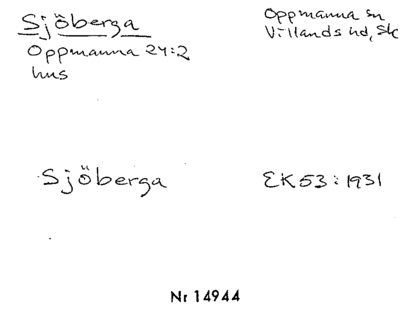 Sjöberga
Oppmanna 24:2
hus
Oppmanna sn
Villands hd, Sk
Sjöberga
EK53:1931
Nr 14944